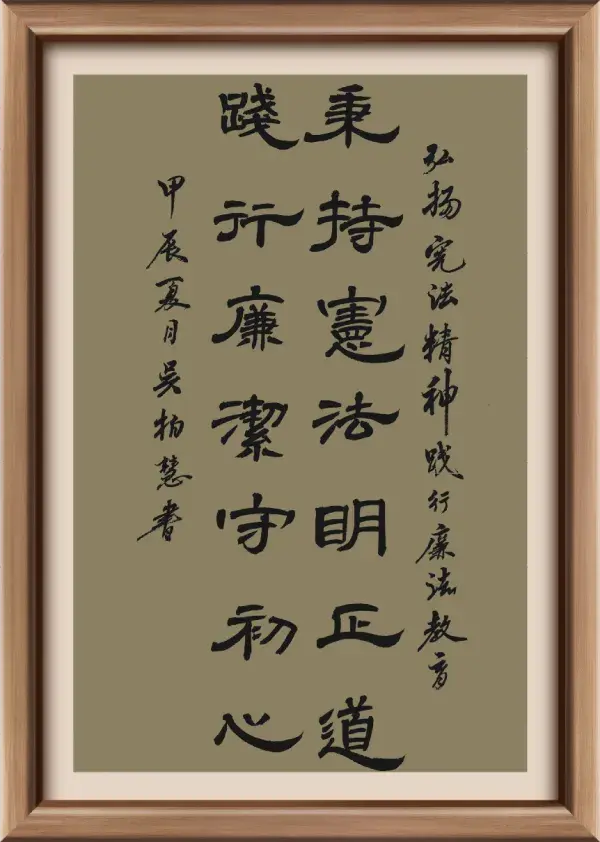 弘扬宪法精神践行廉洁教育
秉持憲法明正道
踐行廉潔守初心
甲辰夏月吴柏慧書